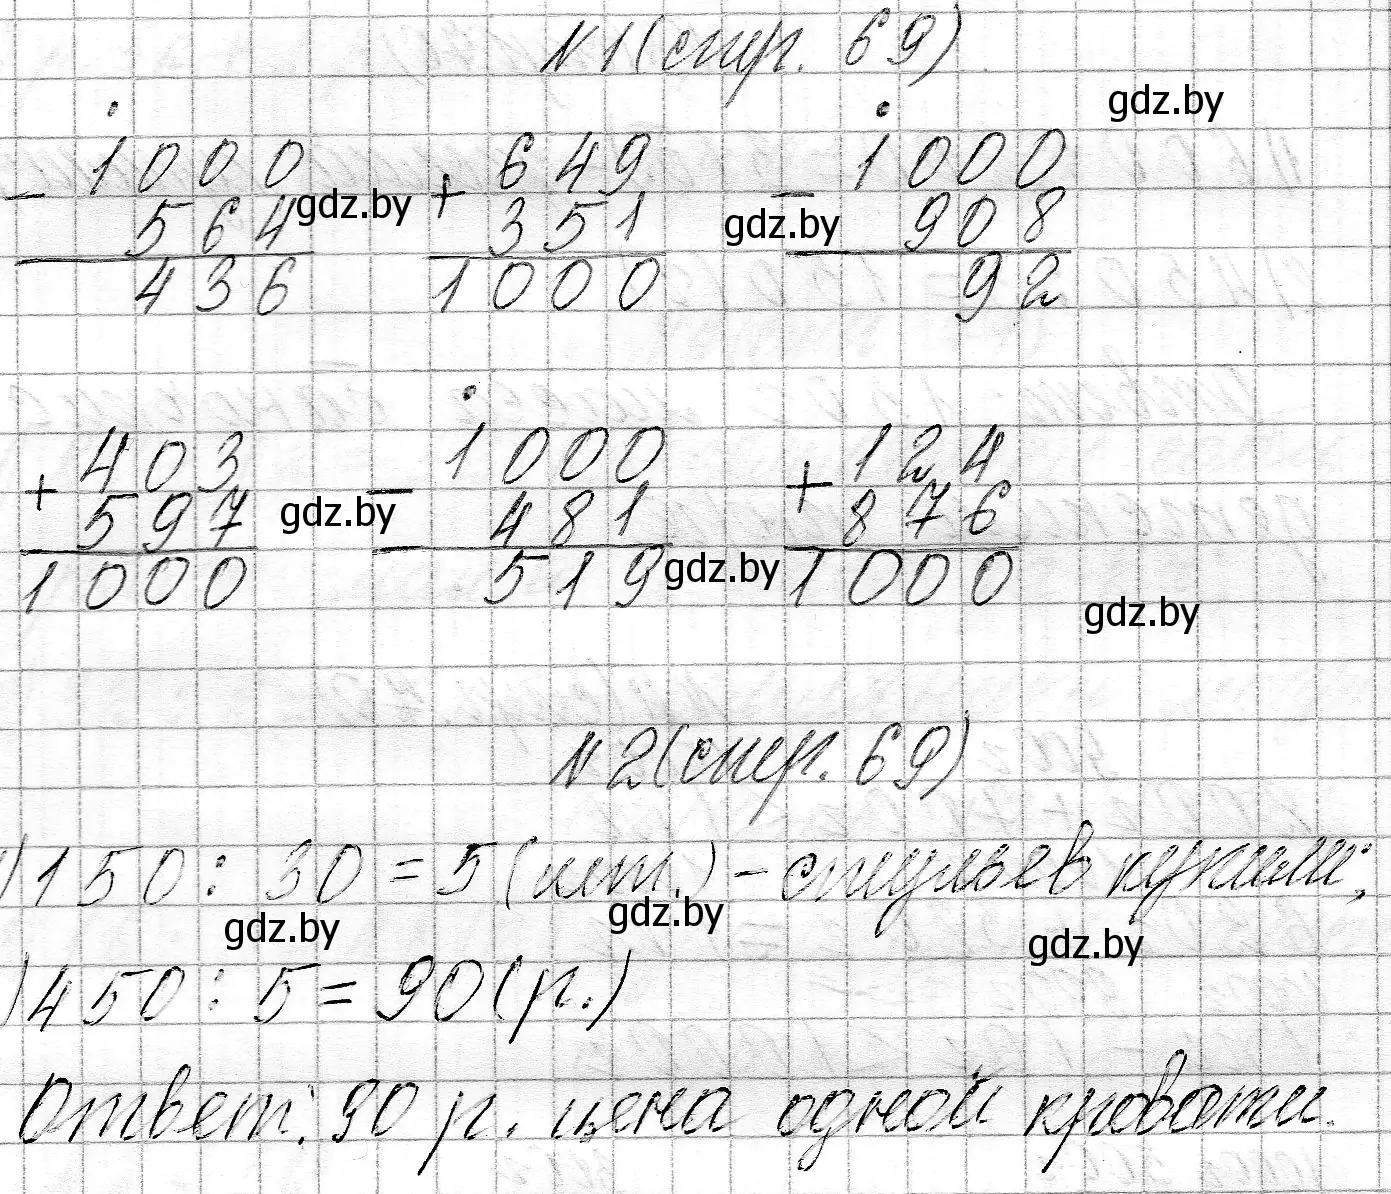 №1(стр. 69)
gdz.by
1000 649 1000
- 564 gdz.by + 351 gdz.by - 908
436 1000 92
403 1000 124
+ 597 gdz.by - 481 + 876
1000 519 gdz.by 1000
gdz.by
№2(стр. 69)
)150 : 30 = 5 (шт.) - стульев купили;
gdz.by gdz.by gdz.by
)450 : 5 = 90 (р.)
Ответ: 90 р. цена одной кровати.